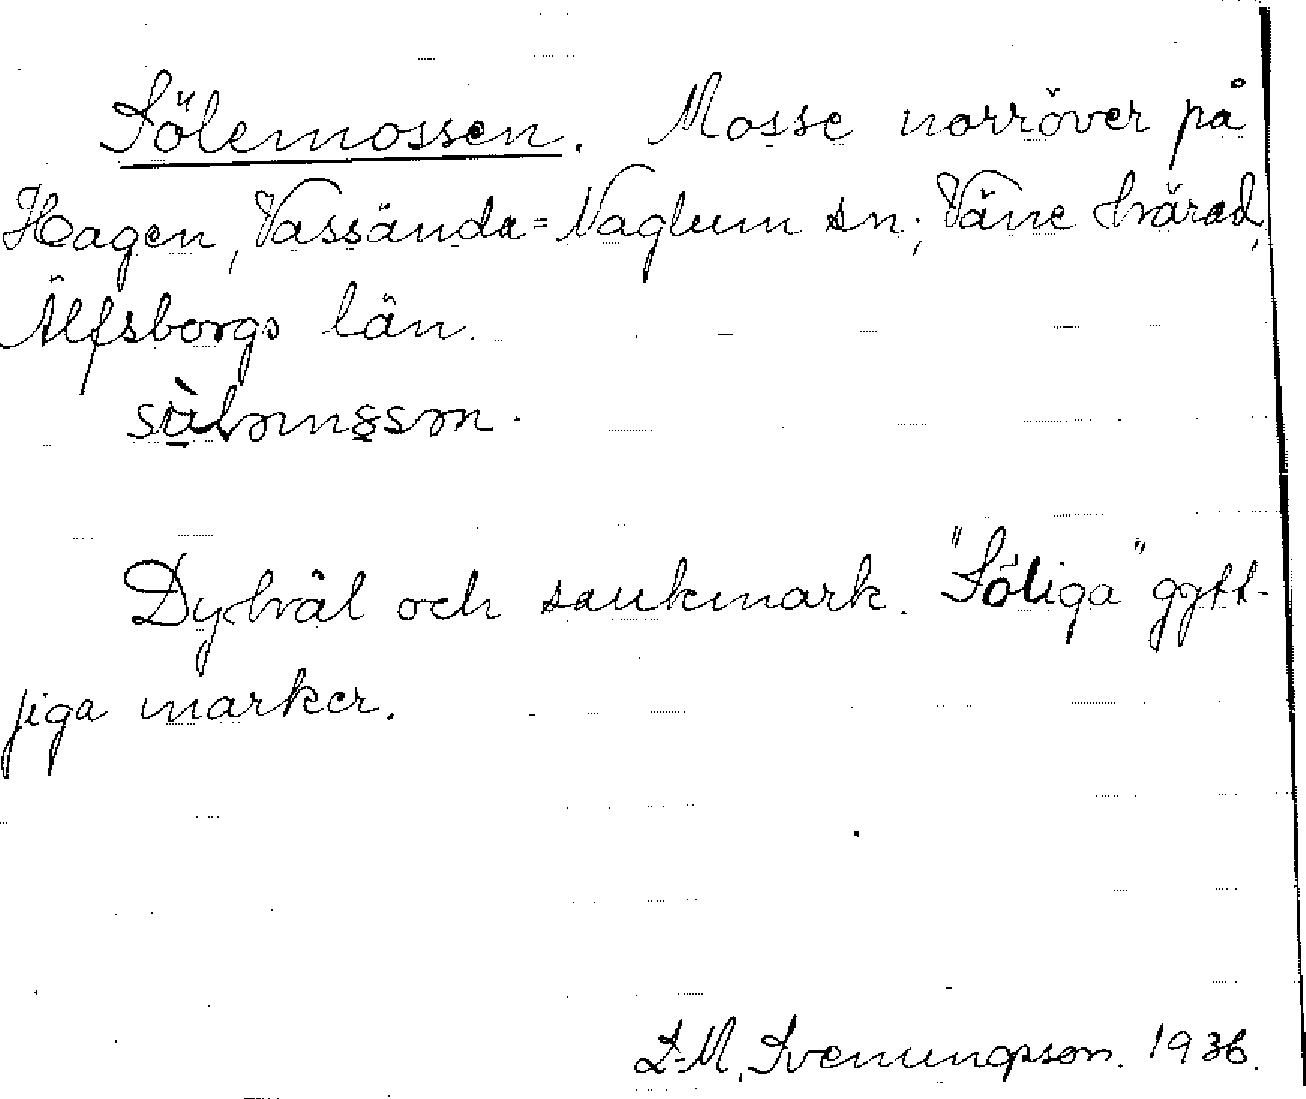 Sölemossen. Mosse norröver på
Hagen, Vassända=Naglum sn; Väne härad,
Älfsborgs län.

Dyhväl och sankmark. "Söliga" gytt-
jiga marker.
Svenungsson. 1936.